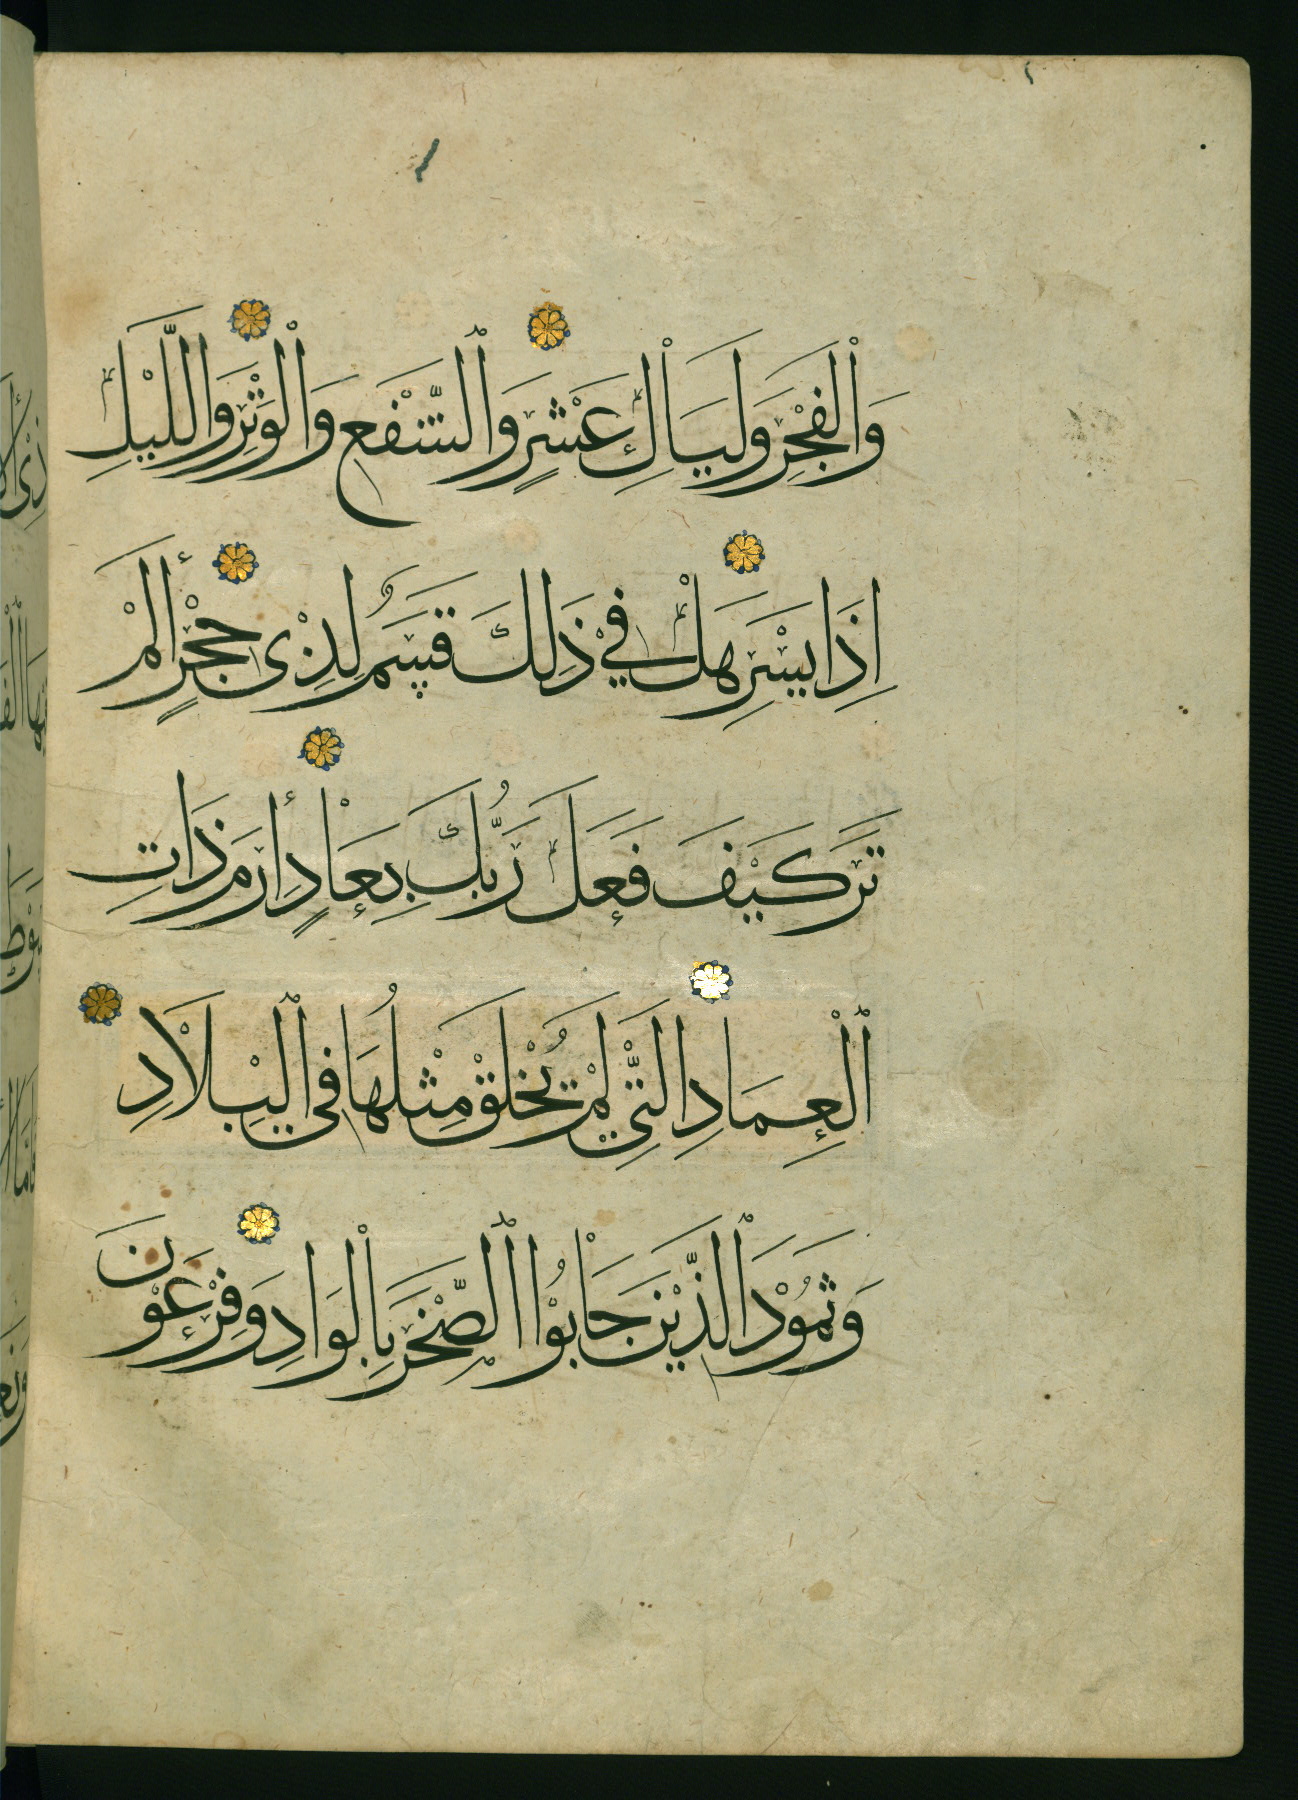 وَالْفَجْرِ وَلَيَالٍ عَشْرٍ وَالشَّفْعِ وَالْوَتْرِ وَاللَّيْلِ
اِذَا يَسْرِ هَلْ فِي ذَلِكَ قَسَمٌ لِذِى حِجْرٍ أَلَمْ
تَرَ كَيْفَ فَعَلَ رَبُّكَ بِعَادٍ إِرَمَ ذَاتِ
الْعِمَادِ الَّتِي لَمْ يُخْلَقْ مِثْلُهَا فِي الْبِلَادِ
وَثَمُوْدَ الَّذِيْنَ جَابُوْا الصَّخْرَ بِالْوَادِ وَفِرْعَوْنَ